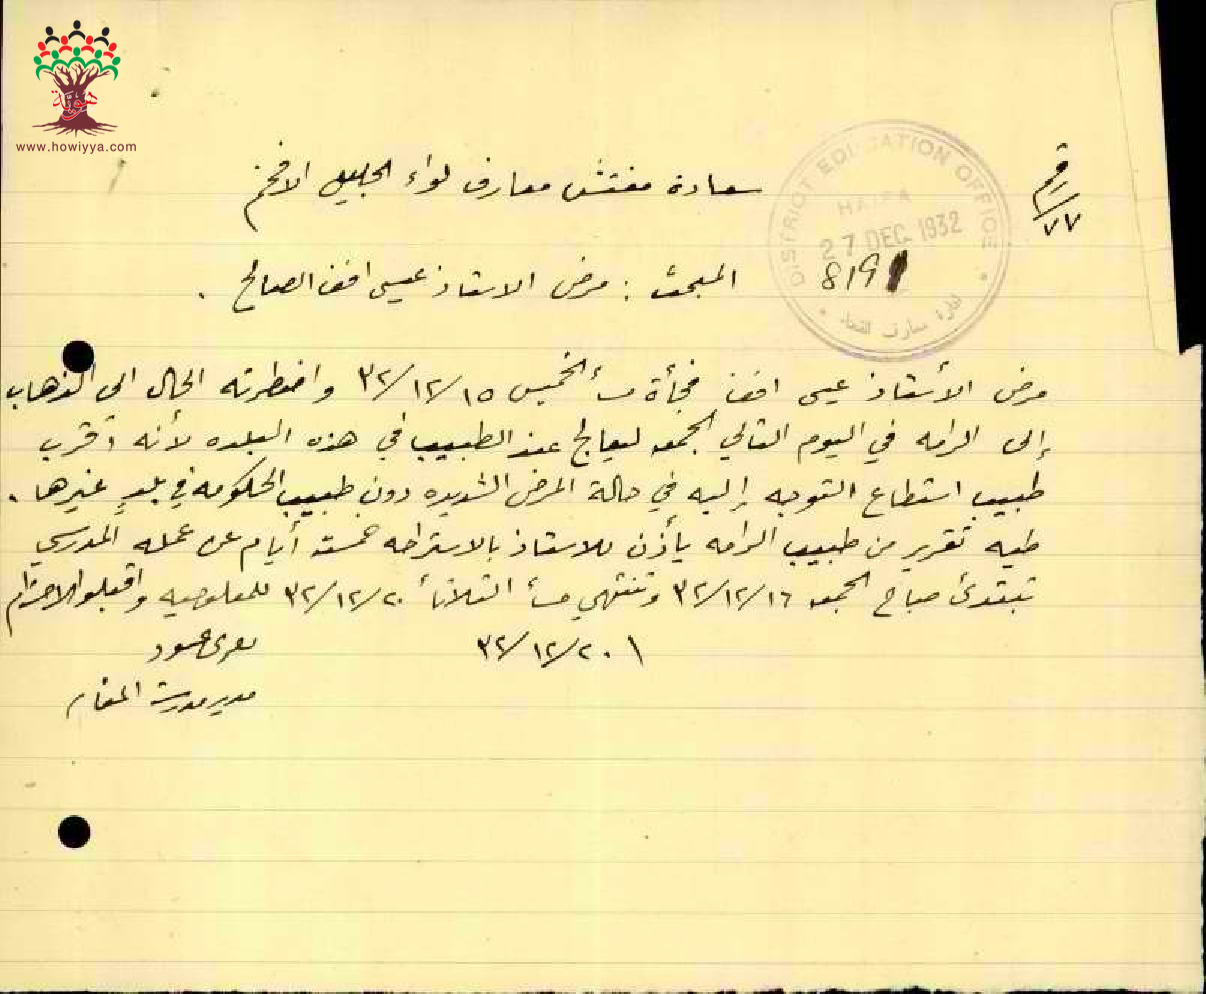 هوية
www.howiyya.com
DISTRICT EDUCATION OFFICE
HAIFA
27 DEC. 1932
8191
رقم
٧٧
سعادة مفتش معارف لواء الجليل الافخم
المبحث : مرض الاستاذ عيسى افندي الصالح .
مرض الأستاذ عيسى افندي فجأة مساء الخميس ٣٢/١٢/١٥ واضطرته الحال الى الذهاب
إلى الرامه في اليوم التالي الجمعه ليعالج عند الطبيب في هذه البلده لأنه أقرب
طبيب استطاع التوجه إليه في حالة المرض الشديده دون طبيب الحكومه في بلدٍ غيرها .
طيه تقرير من طبيب الرامه يأذن للاستاذ بالاستراحه خمسة أيام عن عمله المدرسي
تبتدئ صباح الجمعه ٣٢/١٢/١٦ وتنتهي مساء الثلاثاء ٣٢/١٢/٢٠ للمعلوميه واقبلوا الاحترام
٣٢/١٢/٢٠
مدير مدرسة المغار